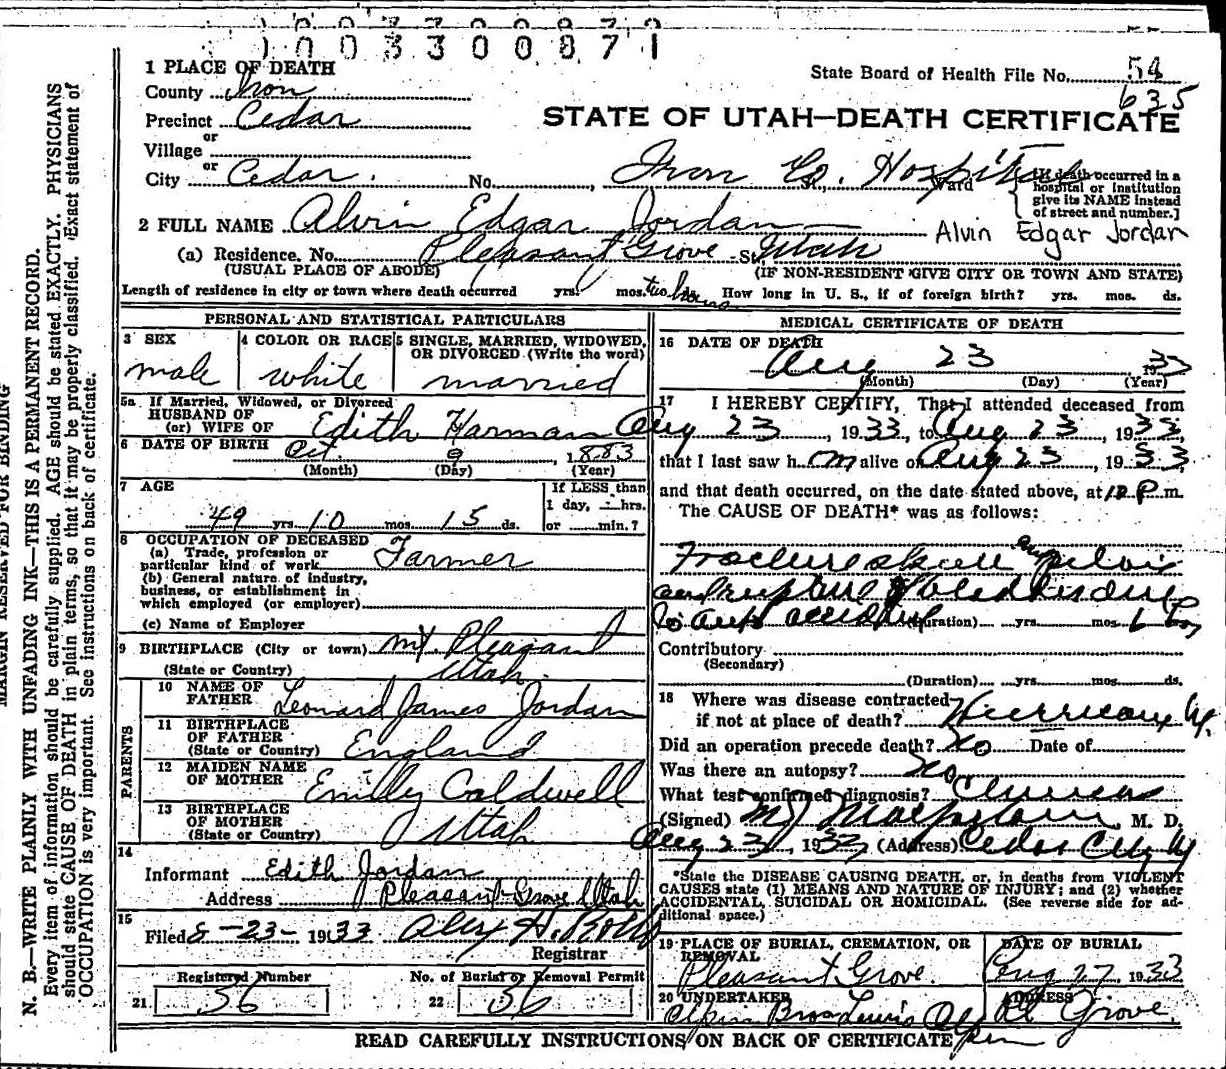 1003300871
1 PLACE OF DEATH
State Board of Health File No. 54
County Iron
635
Precinct Cedar
STATE OF UTAH—DEATH CERTIFICATE
or
Village
or
City Cedar. No. , Iron Co. Hospital St., Ward
[If death occurred in a
hospital or institution
give its NAME instead
of street and number.]
2 FULL NAME Alvin Edgar Jordan Alvin Edgar Jordan
(a) Residence. No. Pleasant Grove St. Utah
(USUAL PLACE OF ABODE) (IF NON-RESIDENT GIVE CITY OR TOWN AND STATE)
Length of residence in city or town where death occurred yrs. mos. two hours ds. How long in U. S., if of foreign birth? yrs. mos. ds.
PERSONAL AND STATISTICAL PARTICULARS
3 SEX male
4 COLOR OR RACE white
5 SINGLE, MARRIED, WIDOWED,
OR DIVORCED (Write the word)
married
5a If Married, Widowed, or Divorced
HUSBAND OF
(or) WIFE OF Edith Harman
6 DATE OF BIRTH Oct. 9, 1883
(Month) (Day) (Year)
7 AGE
49 yrs. 10 mos. 15 ds.
If LESS than
1 day, hrs.
or min.?
8 OCCUPATION OF DECEASED
(a) Trade, profession or
particular kind of work Farmer
(b) General nature of industry,
business, or establishment in
which employed (or employer)
(c) Name of Employer
9 BIRTHPLACE (City or town) Mt. Pleasant
(State or Country) Utah.
PARENTS
10 NAME OF
FATHER Leonard James Jordan
11 BIRTHPLACE
OF FATHER
(State or Country) England
12 MAIDEN NAME
OF MOTHER Emilly Caldwell
13 BIRTHPLACE
OF MOTHER
(State or Country) Utah
14
Informant Edith Jordan
Address Pleasant Grove Utah
15
Filed 8-23- 1933 Alex H. Rollo
Registrar
Registered Number No. of Burial or Removal Permit
21 36 22 36
MEDICAL CERTIFICATE OF DEATH
16 DATE OF DEATH
Aug 23 1933
(Month) (Day) (Year)
17 I HEREBY CERTIFY, That I attended deceased from
Aug 23, 1933, to Aug 23, 1933,
that I last saw him alive on Aug 23, 1933,
and that death occurred, on the date stated above, at 12 P. m.
The CAUSE OF DEATH* was as follows:
Fracture skull and pelvis
and rupture of
auto accident (Duration) yrs. mos.
Contributory
(Secondary)
(Duration) yrs. mos. ds.
18 Where was disease contracted
if not at place of death? Hurricane Ut.
Did an operation precede death? No Date of
Was there an autopsy? No
What test confirmed diagnosis? Clinical
(Signed) M J Macfarlane, M. D.
Aug 23, 1933 (Address) Cedar City U
*State the DISEASE CAUSING DEATH, or, in deaths from VIOLENT
CAUSES state (1) MEANS AND NATURE OF INJURY; and (2) whether
ACCIDENTAL, SUICIDAL OR HOMICIDAL. (See reverse side for ad-
ditional space.)
19 PLACE OF BURIAL, CREMATION, OR
REMOVAL
Pleasant Grove.
DATE OF BURIAL
Aug 27 1933
20 UNDERTAKER
Bros Lewis
ADDRESS
Pl Grove.
READ CAREFULLY INSTRUCTIONS ON BACK OF CERTIFICATE
MARGIN RESERVED FOR BINDING
N. B.—WRITE PLAINLY WITH UNFADING INK—THIS IS A PERMANENT RECORD.
Every item of information should be carefully supplied. AGE should be stated EXACTLY. PHYSICIANS
should state CAUSE OF DEATH in plain terms, so that it may be properly classified. Exact statement of
OCCUPATION is very important. See instructions on back of certificate.